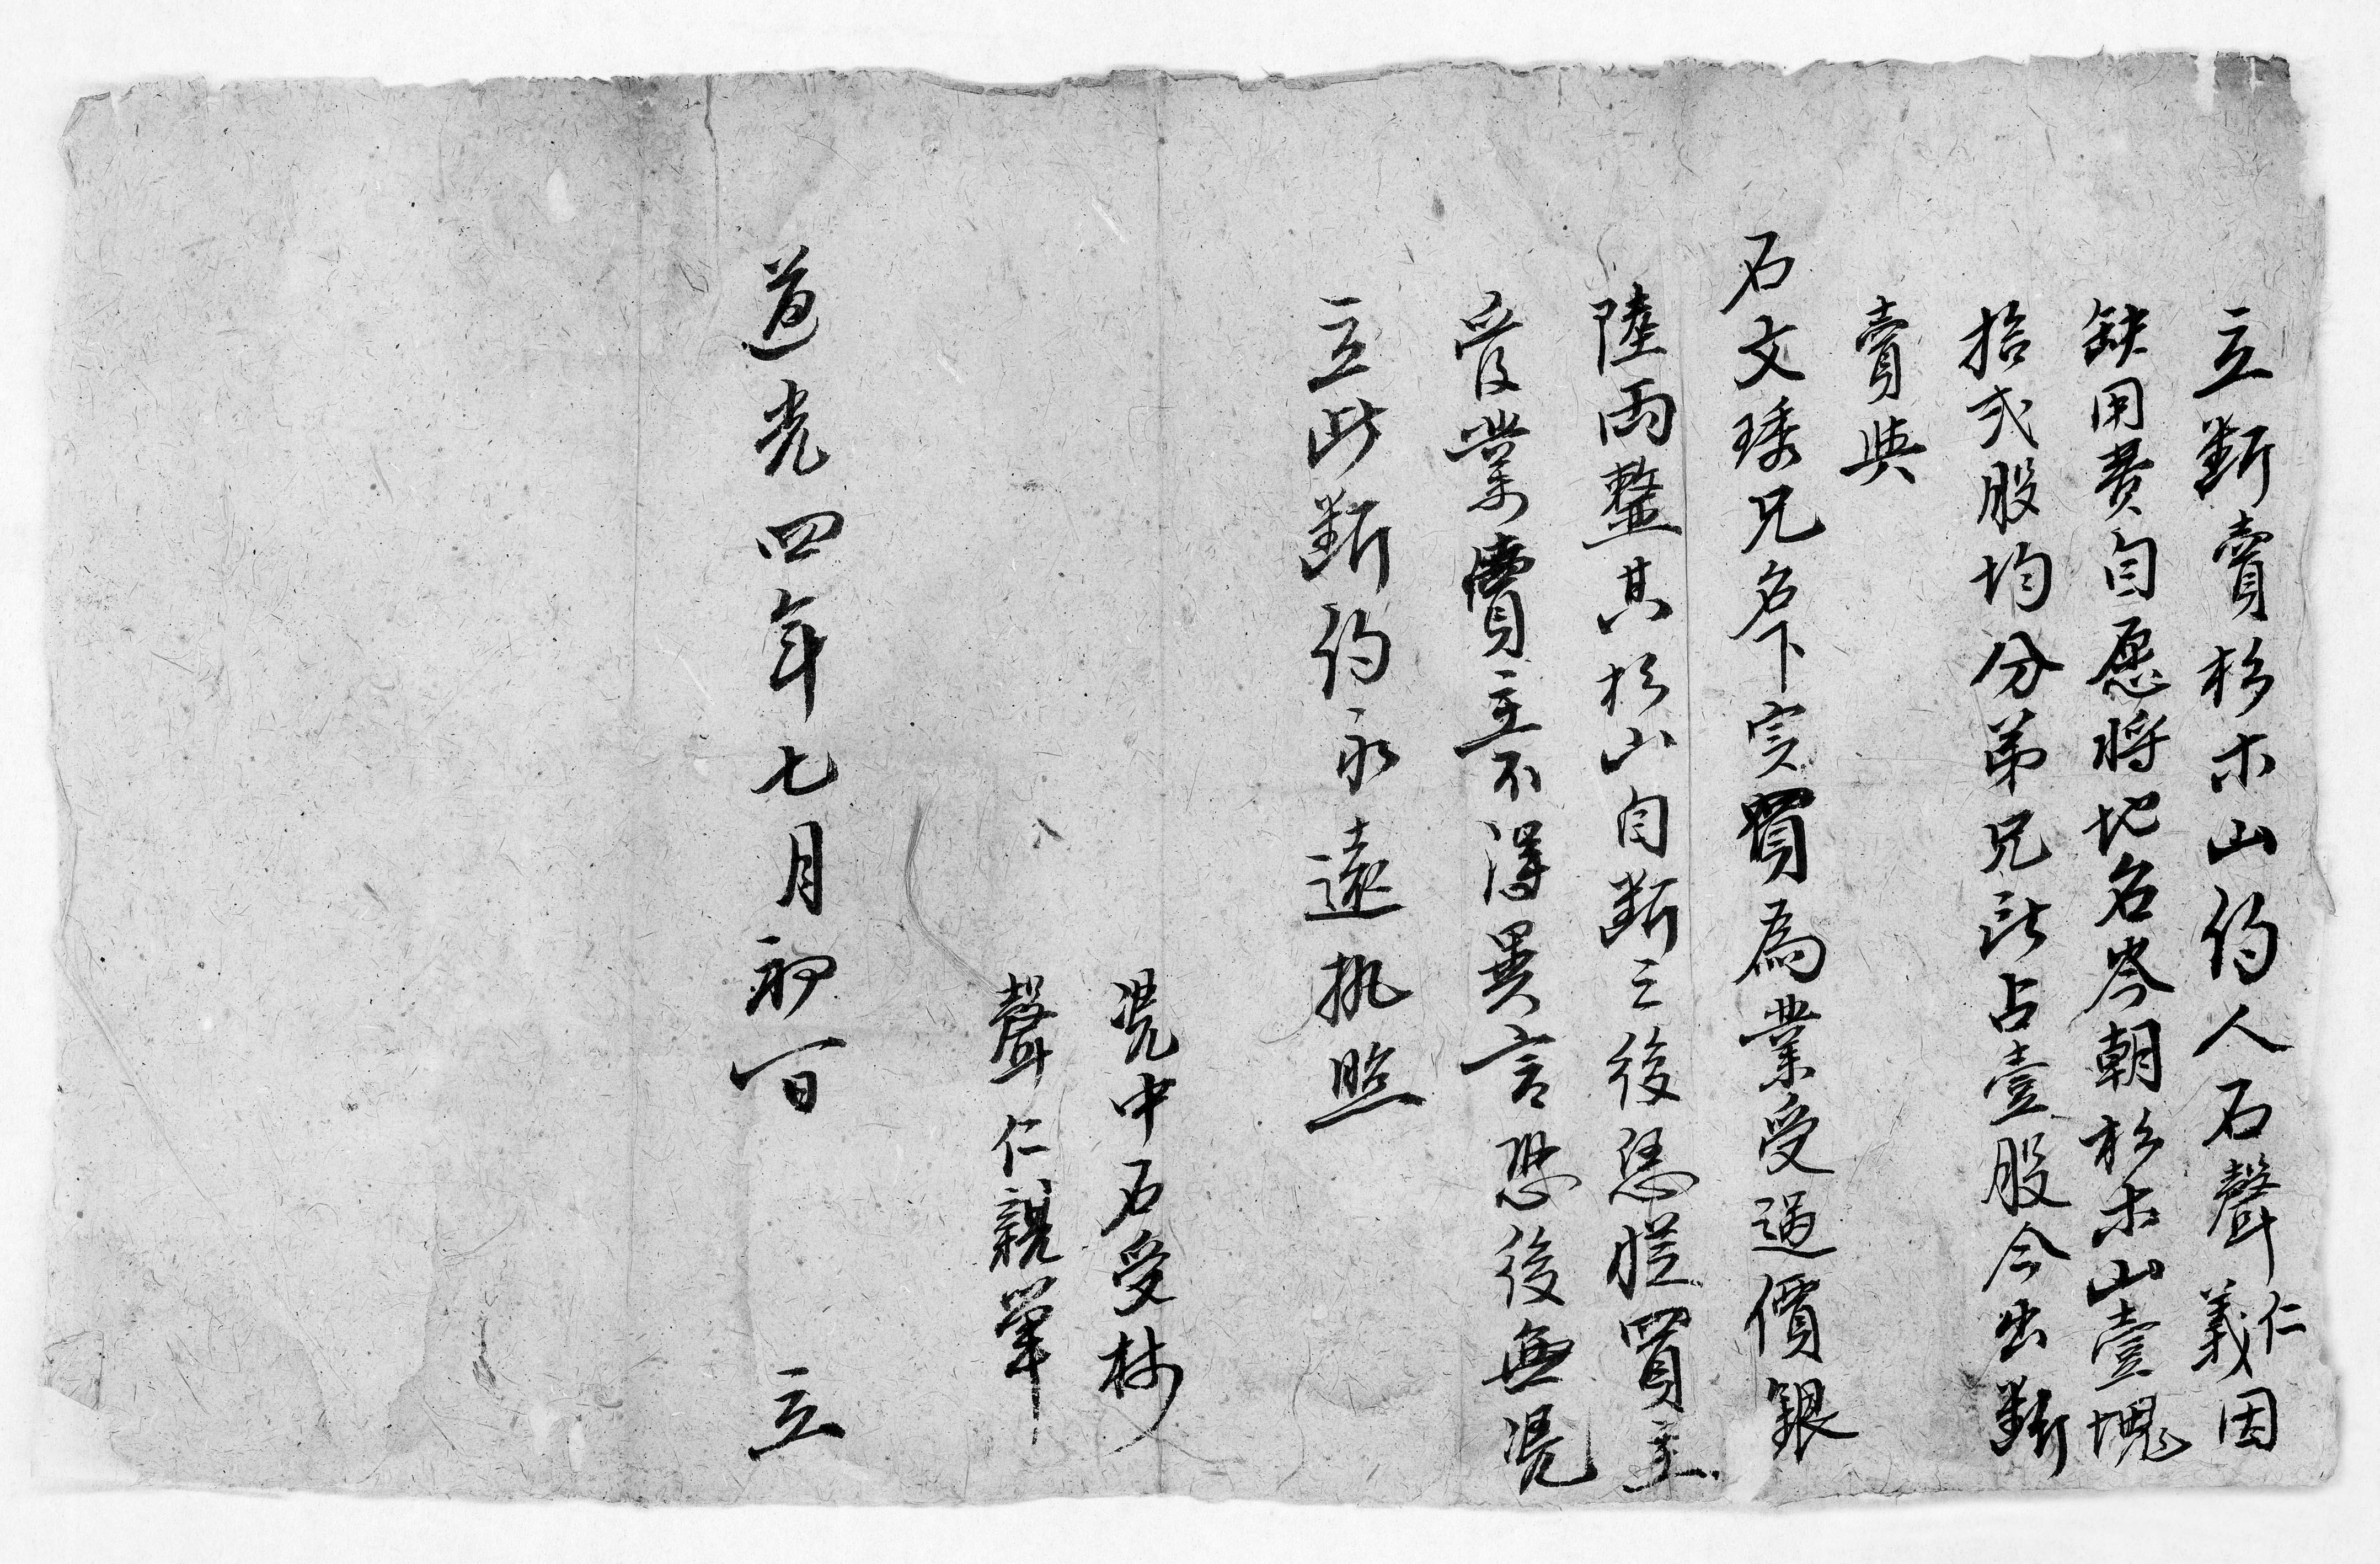 立斷賣杉木山約人石聲仁義因
缺用費自愿將地名岑朝杉木山壹塊
拾弍股均分弟兄該占壹股今出斷
賣與
石文瑧兄名下實買為業受過價銀
陸両整其杉山自斷之後凭從買主
管業賣主不得異言恐後無凴
立此斷約永遠执照
凴中石受材
聲仁親筆
道光四年七月初一日 立